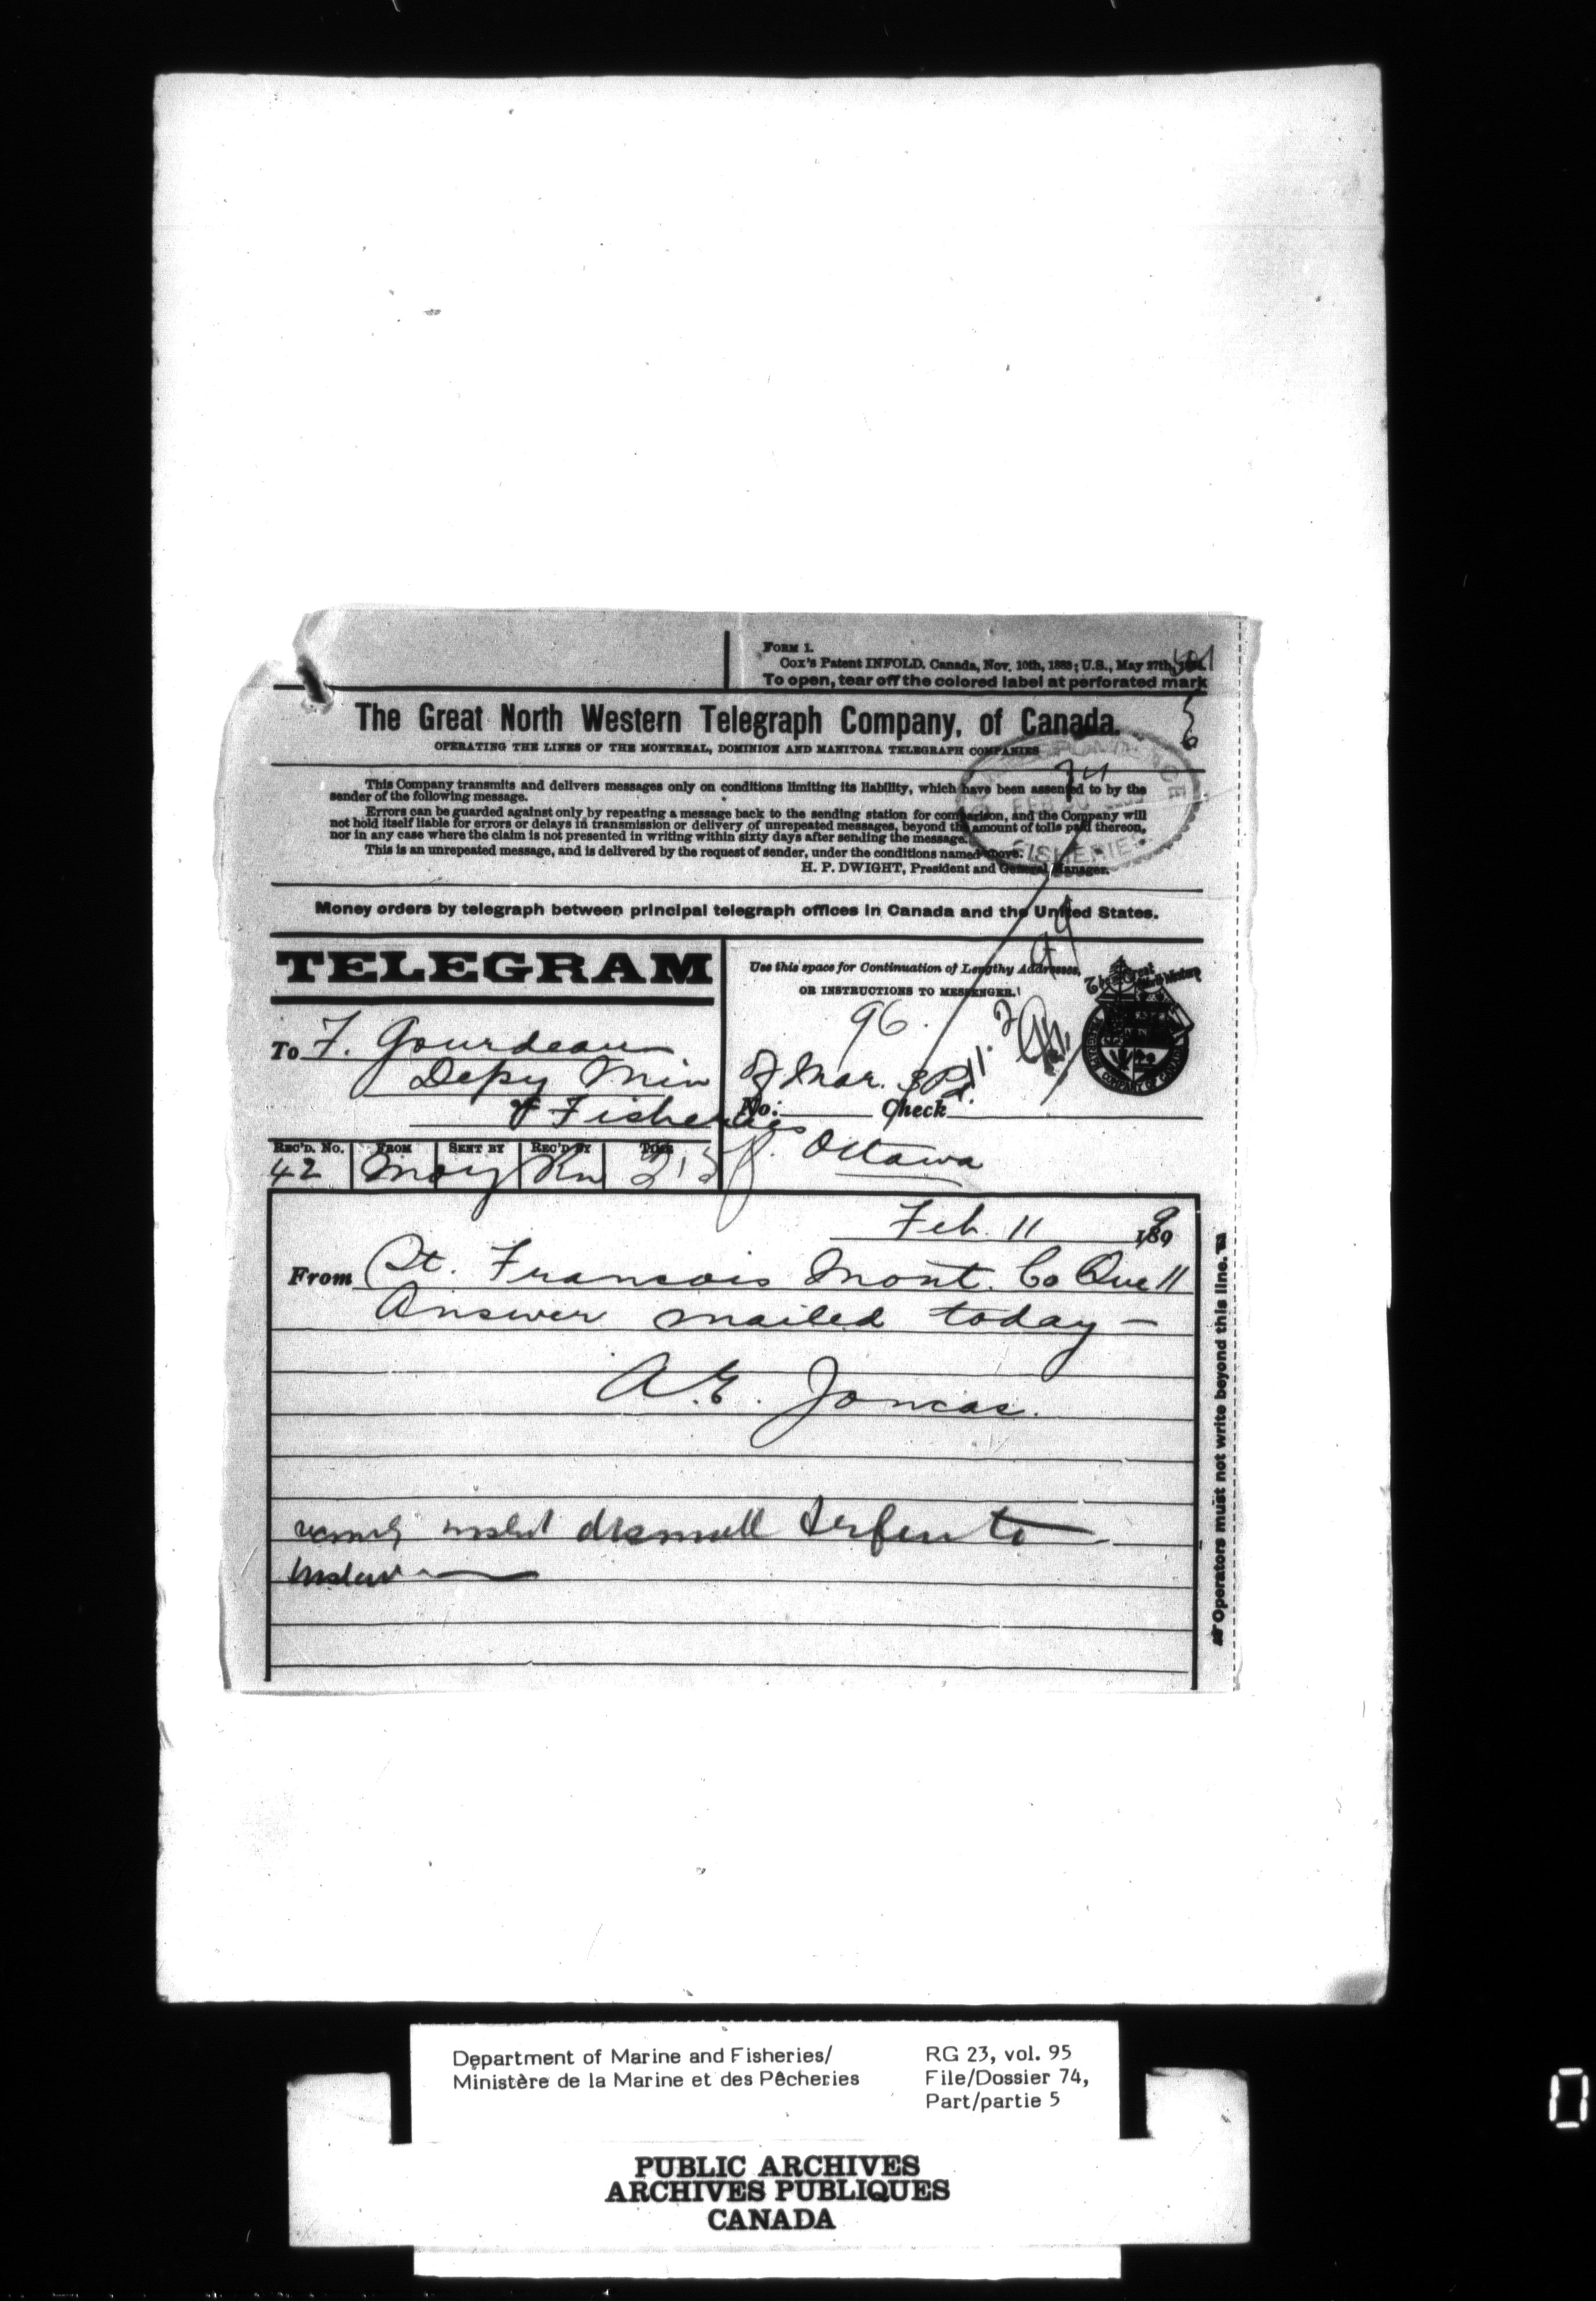 FORM 1.
Cox's Patent INFOLD. Canada, Nov. 10th, 1883; U.S., May 27th,
To open, tear off the colored label at perforated mark
The Great North Western Telegraph Company, of Canada.
OPERATING THE LINES OF THE MONTREAL, DOMINION AND MANITOBA TELEGRAPH COMPANIES
This Company transmits and delivers messages only on conditions limiting its liability, which have been assented to by the
sender of the following message.
Errors can be guarded against only by repeating a message back to the sending station for comparison, and the Company will
not hold itself liable for errors or delays in transmission or delivery of unrepeated messages, beyond the amount of tolls paid thereon,
nor in any case where the claim is not presented in writing within sixty days after sending the message.
This is an unrepeated message, and is delivered by the request of sender, under the conditions named above.
H. P. DWIGHT, President and General Manager.
FISHERIES
Money orders by telegraph between principal telegraph offices in Canada and the United States.
TELEGRAM
Use this space for Continuation of Lengthy Addresses,
OR INSTRUCTIONS TO MESSENGER.
96.
To F. Gourdeau
Depy Min
of Fisheries
of Mar.
No. Check
Ottawa
REC'D. NO. FROM SENT BY REC'D BY TIME
42
Feb. 11 1899
From St. Francois Mont. Co Que 11
Answer mailed today —
A.E. Joncas.
Operators must not write beyond this line.
Department of Marine and Fisheries/
Ministère de la Marine et des Pêcheries
RG 23, vol. 95
File/Dossier 74,
Part/partie 5
PUBLIC ARCHIVES
ARCHIVES PUBLIQUES
CANADA